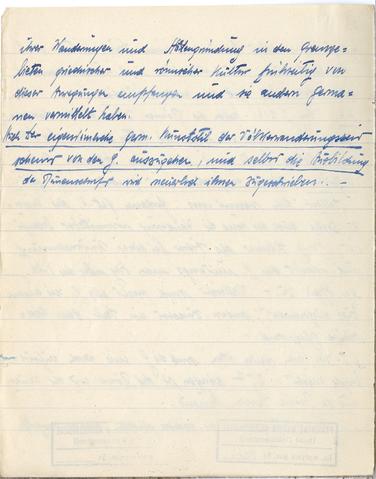 ihrer Wanderungen und Staatengründung in den Grenzge-
bieten griechischer und römischer Kultur frühzeitig von
dieser Anregungen empfangen und sie andern Germa-
nen vermittelt haben.
Der eigentümliche germ. Kunststil der Völkerwanderungszeit
scheint von den G. auszugehen, und selbst die Ausbildung
der Runenschrift wird neuerdings ihnen zugeschrieben. –